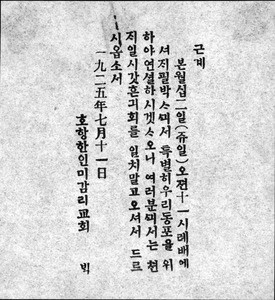 근계
본월십二일(쥬일)오젼十一시례배에
셔재필박스께서 특별히우리동포을위
하야연셜하시겟스오니 여러분께서는 쳔
재일시갓흔긔회를 일치말고오셔서 드르
시옵소서
一九二五年七月十一日
호항한인미감리교회 빅